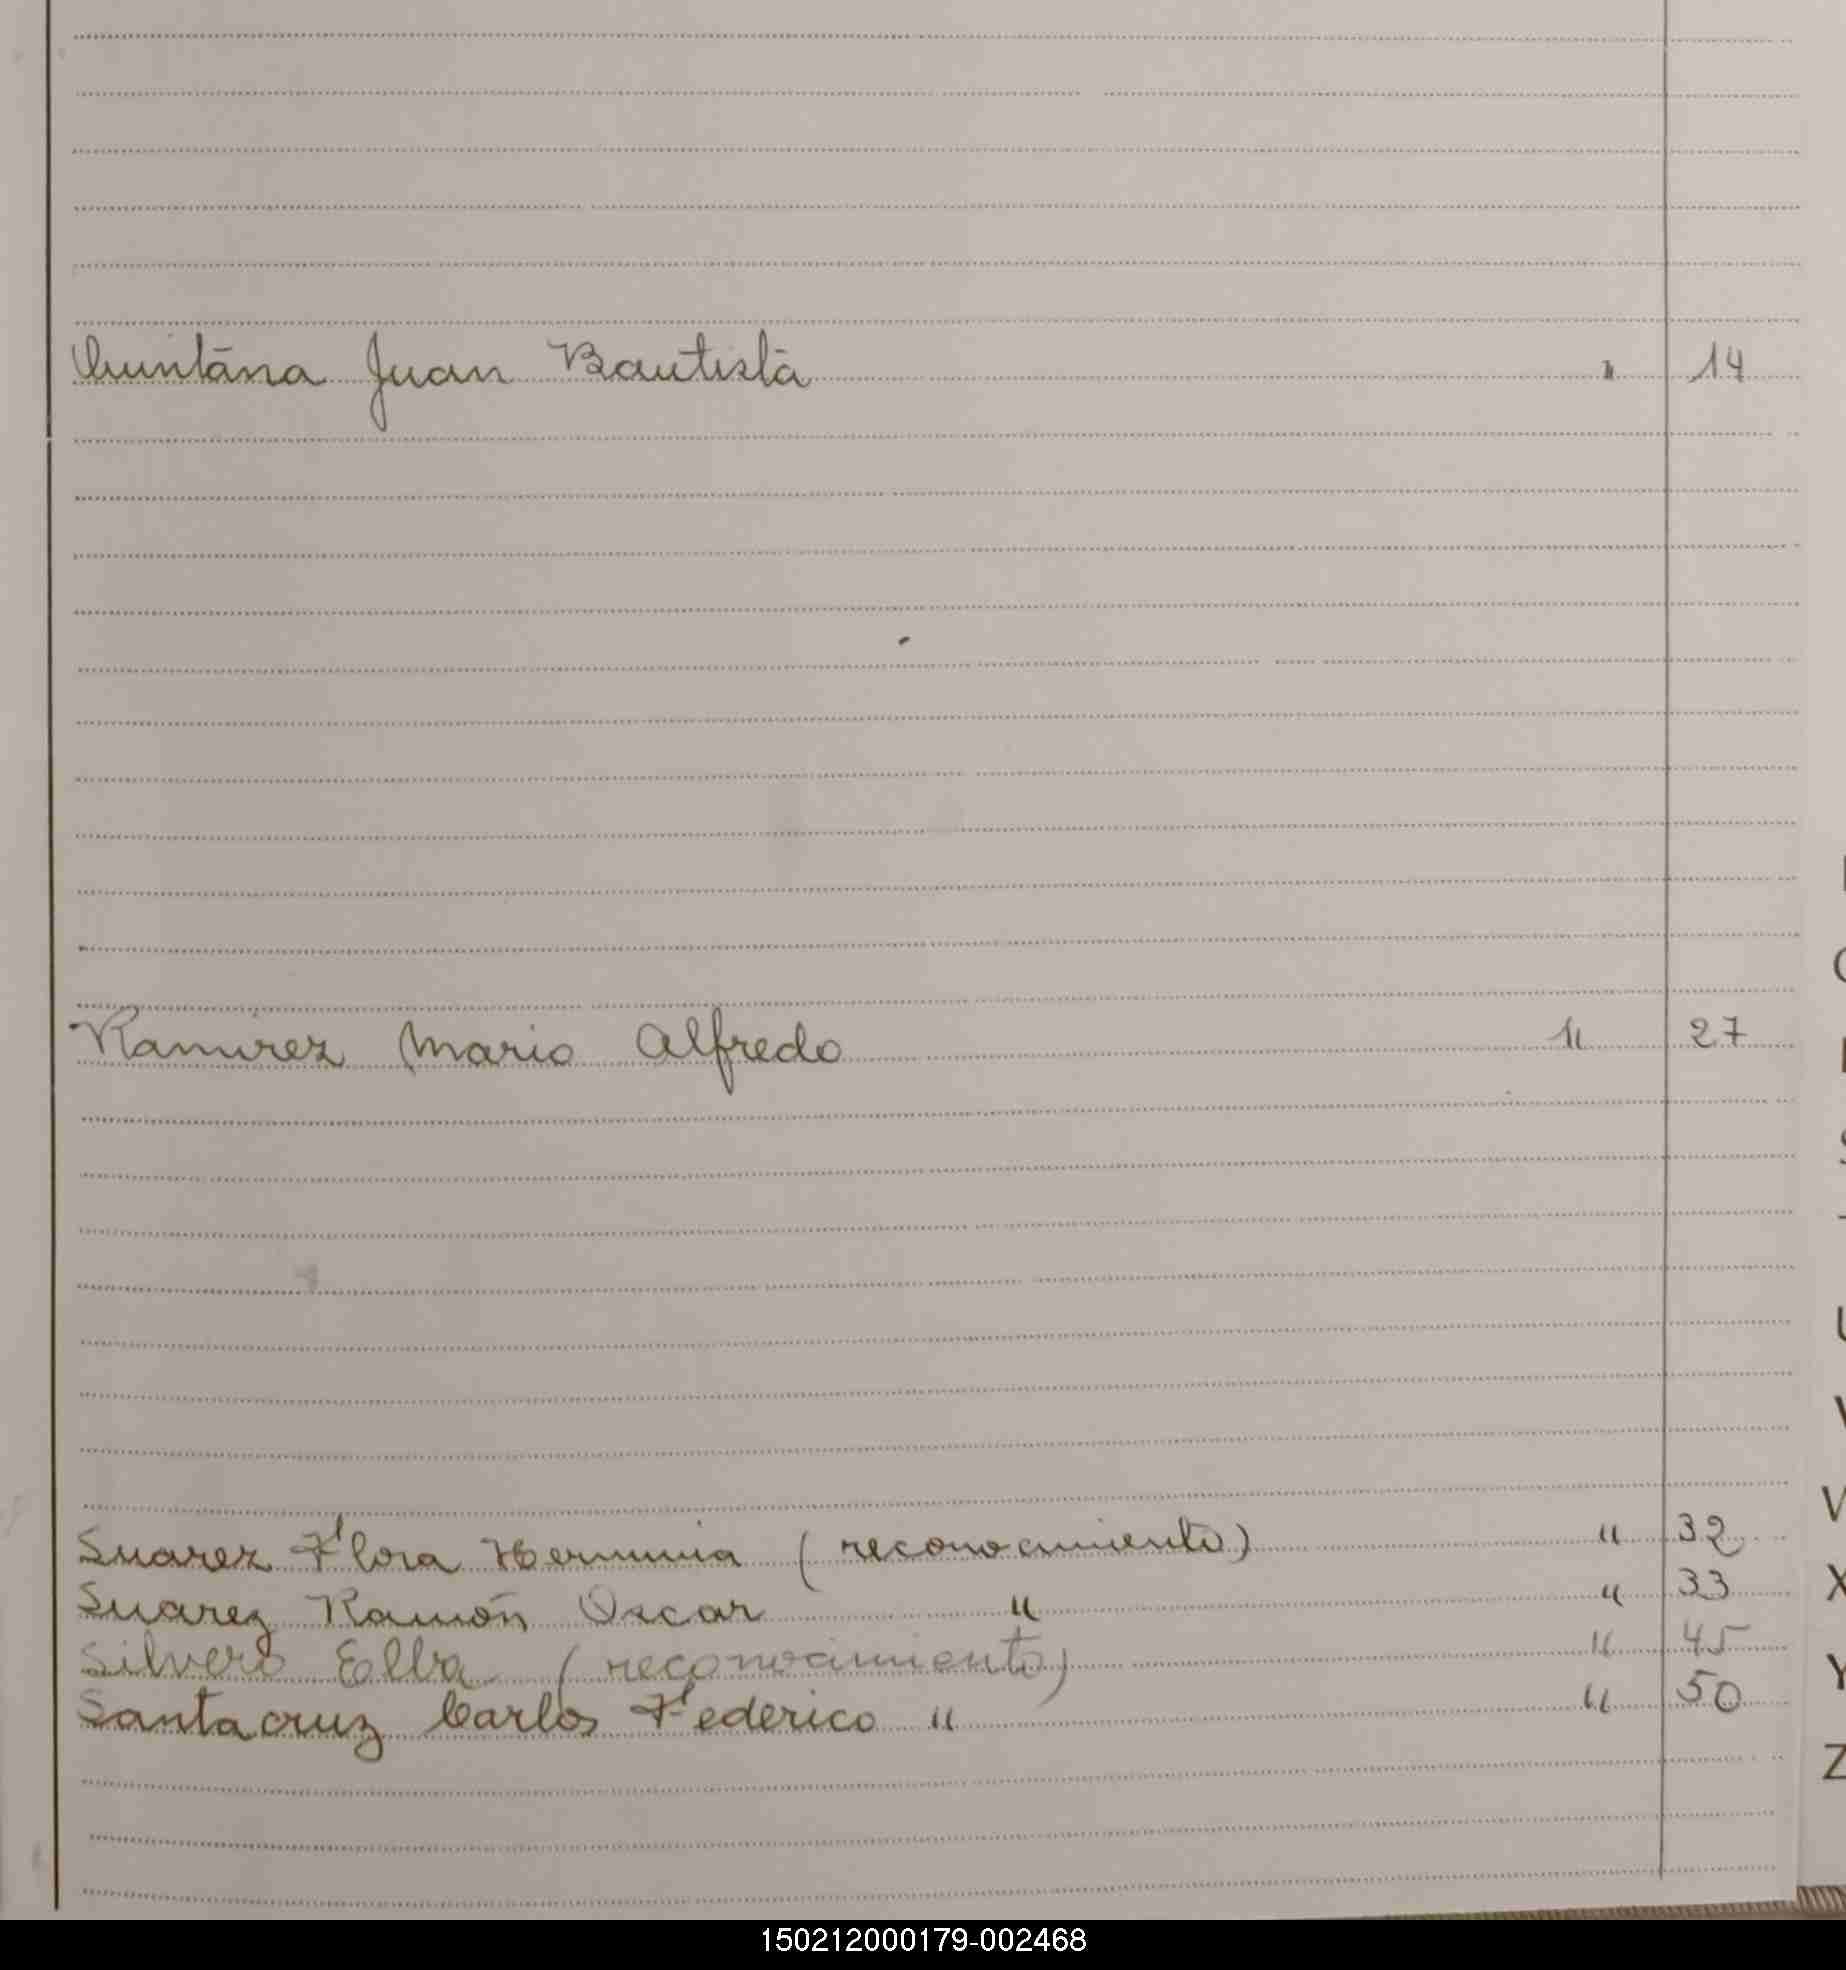 Quintana Juan Bautista " 14
Ramirez Mario Alfredo " 27
Suarez Flora Herminia (reconocimiento) " 32
Suarez Ramón Oscar " " 33
Silvero Elba (reconocimiento) " 45
Santacruz Carlos Federico " " 50
S
U
V
X
Y
Z
150212000179-002468